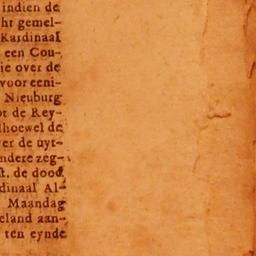 indien de
ht gemel-
Kardinaal
een Cou-
ie over de
voor eeni-
Nieuburg
ot de Rey-
lhoewel de
er de uyt-
ndere zeg-
st, de dood
dinaal Al-
Maandag
eland aan-
ten eynde